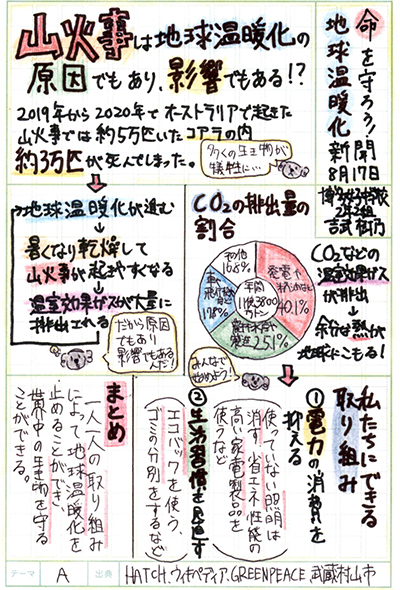 命を守ろう!
地球温暖化
新聞
8月17日
2年2組
山火事は地球温暖化の
原因でもあり、影響でもある!?
2019年から2020年でオーストラリアで起きた
山火事では約5万匹いたコアラの内
約3万匹が死んでしまった。
多くの生き物が
犠牲に…
地球温暖化が進む
暑くなり乾燥して
山火事が起きやすくなる
温室効果ガスが大量に
排出される
だから原因
でもあり
影響でもある
んだ!
CO2の排出量の
割合
その他
16.8%
発電や
40.1%
25.1%
17.8%
年間
11億3800
万トン
みんなで
止めよう!
CO2などの
温室効果ガス
が排出
余分な熱が
地球にこもる!
私たちにできる
取り組み
①電力の消費を
抑える
使っていない照明は
消す、省エネ性能の
高い家電製品を
使うなど
②生活習慣を見直す
エコバックを使う、
ゴミの分別をするなど
まとめ
一人一人の取り組み
によって地球温暖化を
止めることができ、
世界中の生き物を守る
ことができる。
テーマ
A
出典
HATCH.ウィキペディア.GREENPEACE.武蔵村山市